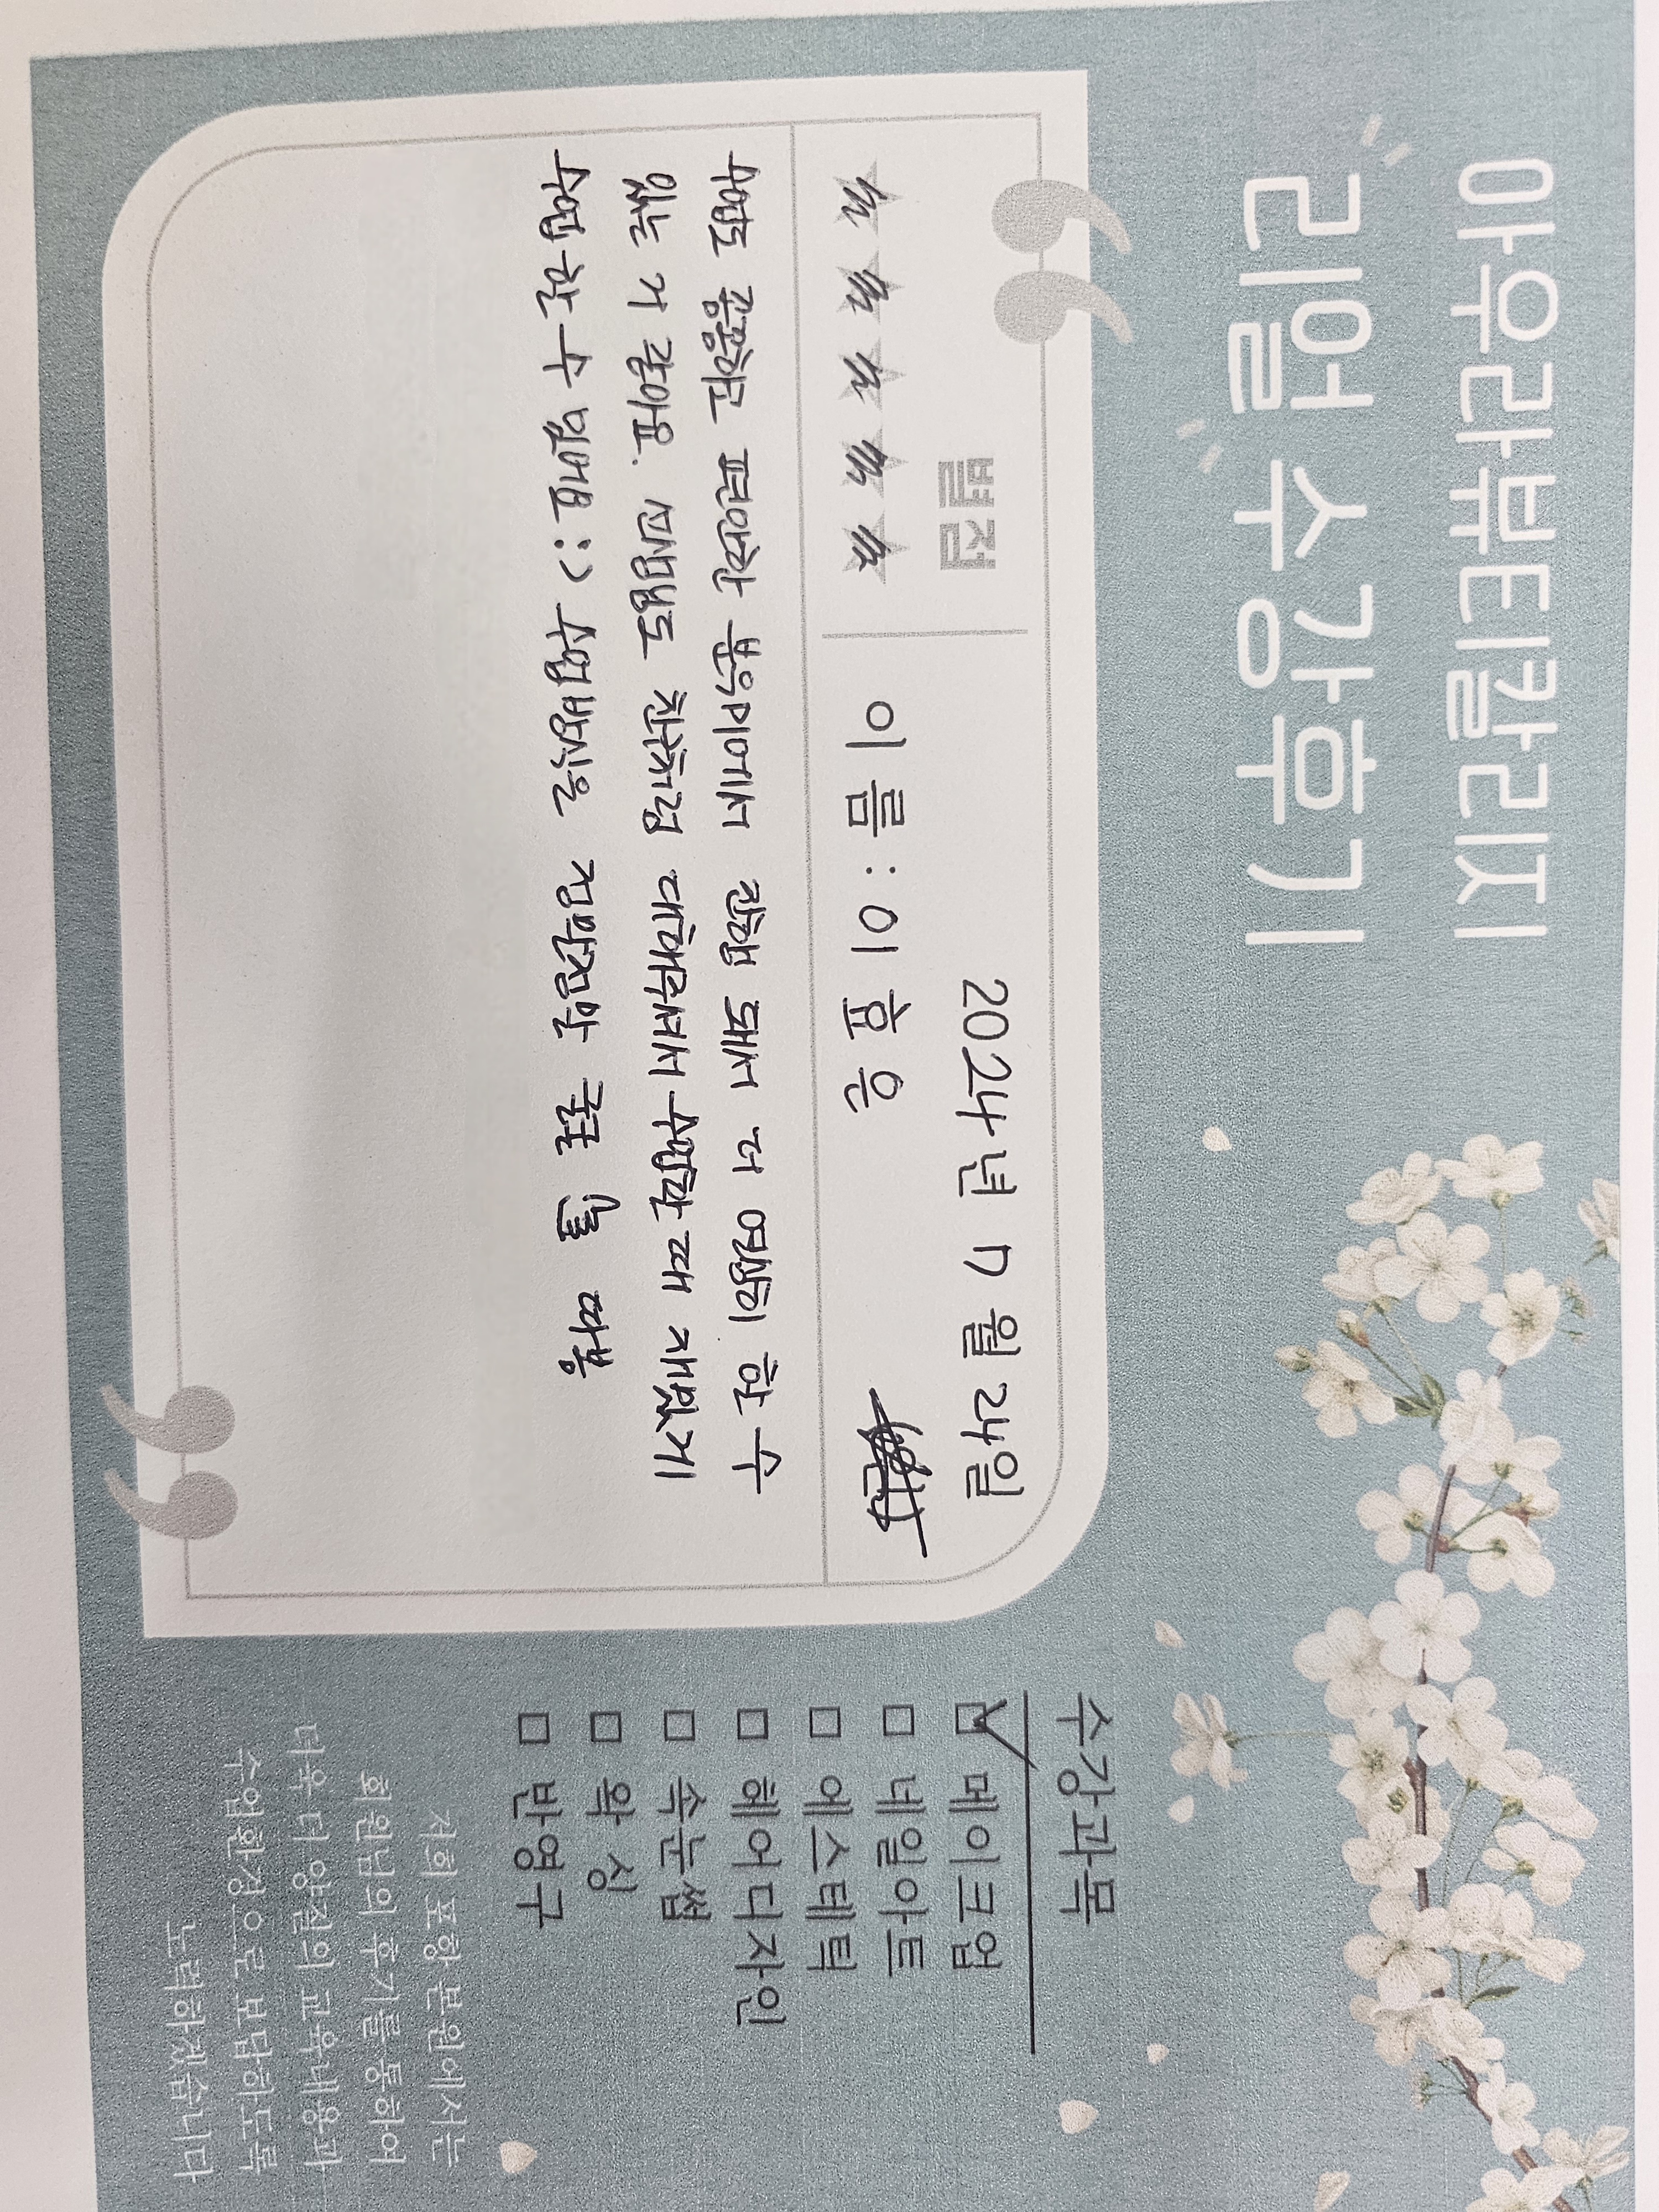 아우라뷰티칼리지
리얼 수강후기
별점
2024년 7월 24일
이름 : 이효은
수업도 조용하고 편안한 분위기에서 진행 돼서 더 열심히 할 수
있는 거 같아요. 선생님도 친절히 대해주셔서 수업할 때 재밌게
수업할 수 있네요 :) 수업방식은 전반적인
수강과목
☑ 메이크업
☐ 네일아트
☐ 에스테틱
☐ 헤어디자인
☐ 속눈썹
☐ 왁싱
☐ 반영구
저희 포항본원에서는
회원님의 후기를 통하여
더욱 더 양질의 교육내용과
수업환경으로 보답하도록
노력하겠습니다